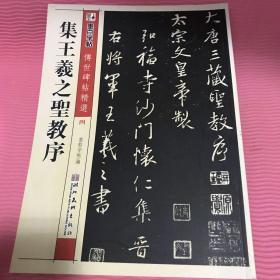 大唐三藏聖教序
太宗文皇帝製
弘福寺沙門懷仁集晉
右將軍王羲之書
墨点字帖
傳世碑帖精選
四
集王羲之聖教序